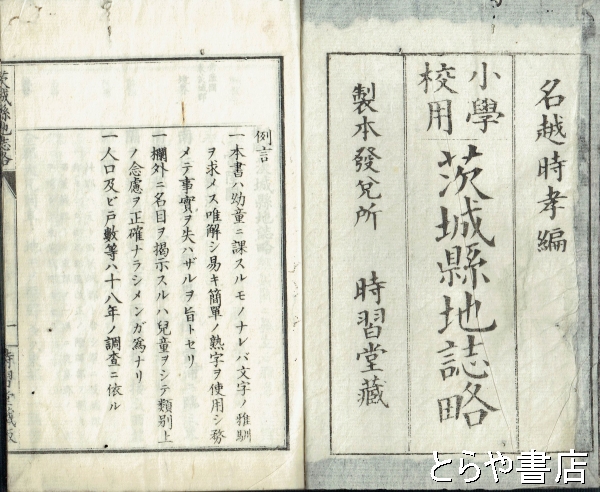 名越時孝編
小學校用
茨城縣地誌略
製本發兌所　時習堂藏
例言
一本書ハ幼童ニ課スルモノナレバ文字ノ雅馴
ヲ求メス唯解シ易キ簡單ノ熟字ヲ使用シ務
メテ事實ヲ失ハザルヲ旨トセリ
一欄外ニ名目ヲ揭示スルハ兒童ヲシテ類別上
ノ念慮ヲ正確ナラシメンガ為ナリ
一人口及ビ戸數等ハ十八年ノ調査ニ依ル
茨城縣地誌略
一
時習堂藏版
とらや書店